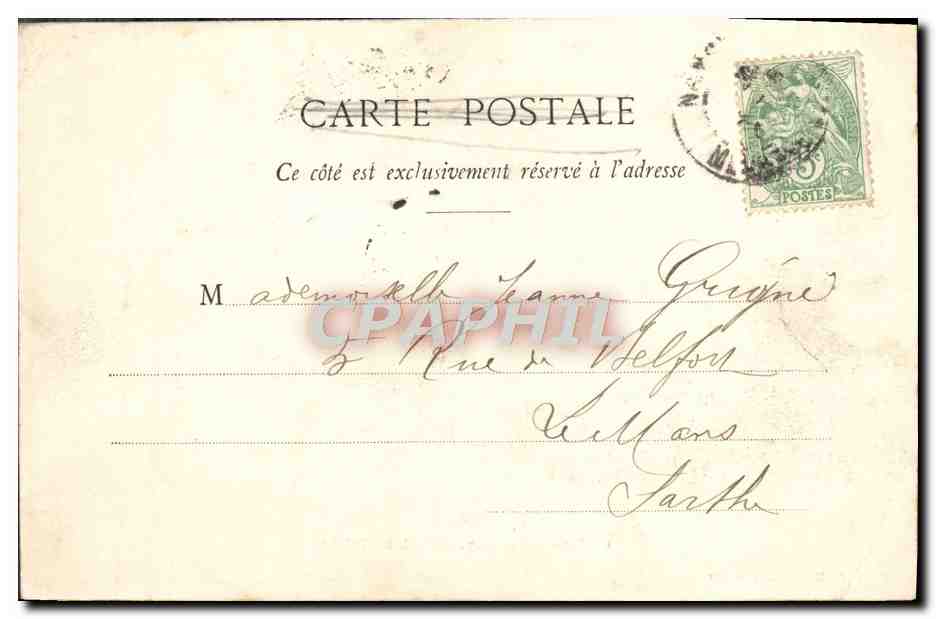 CARTE POSTALE
Ce côté est exclusivement réservé à l'adresse
5c
POSTES
Mademoiselle Jeanne Grigné
CPAPHIL
5 Rue de Belfort
Le Mans
Sarthe